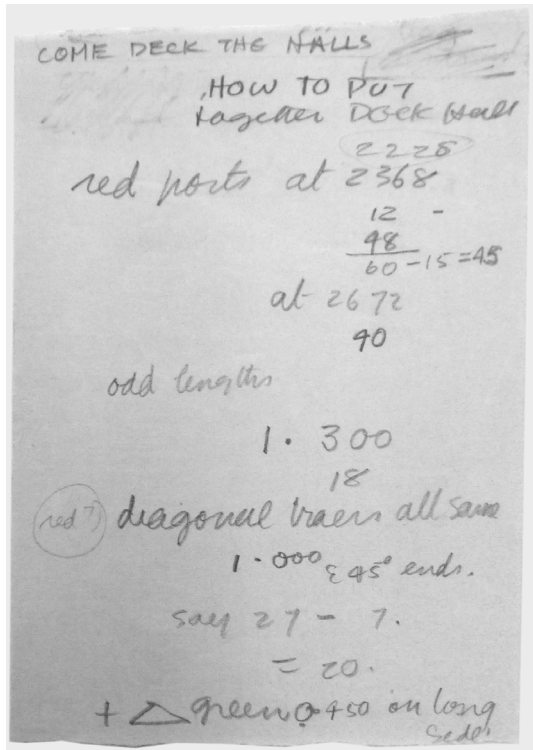 COME DECK THE HALLS
HOW TO PUT
together DECK Hall
2225
red posts at 2368
12 -
48
60 - 15 = 45
at 2672
40
odd lengths
1 . 300
18
red ?
diagonal braces all same
1 . 000 & 45° ends.
say 27 - 7.
= 20.
+ △ green @ 450 on long
side.